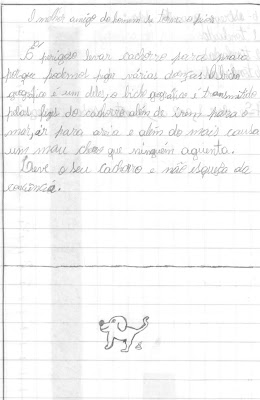 O melhor amigo do homem se tornou a pior
É perigoso levar cachorro para praia
porque podemos pegar várias doenças. O bicho
geográfico é um deles, o bicho geográfico é transmitido
pelas fezes do cachorro além de irem para o
mar, ir para areia e além do mais causa
um mau cheiro que ninguém aguenta.
Leve o seu cachorro e não esqueça da
consciência.